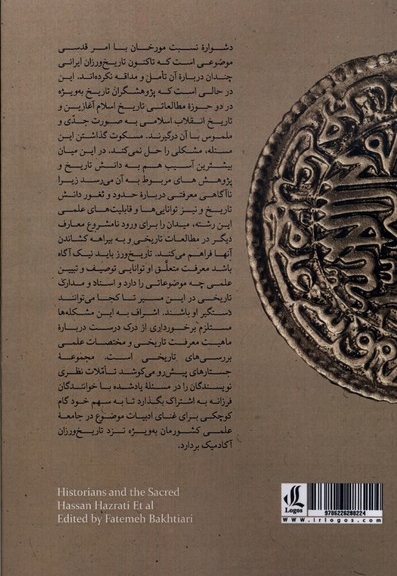 دشوارهٔ نسبت مورخان با امر قدسی
موضوعی است که تاکنون تاریخ‌ورزان ایرانی
چندان دربارهٔ آن تأمل و مداقه نکرده‌اند. این
در حالی است که پژوهشگران تاریخ به‌ویژه
در دو حوزهٔ مطالعاتی تاریخ اسلام آغازین و
تاریخ انقلاب اسلامی به صورت جدّی و
ملموس با آن درگیرند. مسکوت گذاشتن این
مسئله، مشکلی را حل نمی‌کند. در این میان
بیشترین آسیب هم به دانش تاریخ و
پژوهش های مربوط به آن می‌رسد زیرا
ناآگاهی معرفتی دربارهٔ حدود و ثغور دانش
تاریخ و نیز توانایی‌ها و قابلیت‌های علمی
این رشته، میدان را برای ورود نامشروع معارف
دیگر در مطالعات تاریخی و به بیراهه کشاندن
آنها فراهم می‌کند. تاریخ‌ورز باید نیک آگاه
باشد معرفت متعلّق او توانایی توصیف و تبیین
علمی چه موضوعاتی را دارد و اسناد و مدارک
تاریخی در این مسیر تا کجا می‌توانند
دستگیر او باشند. اشراف به این مشکله‌ها
مستلزم برخورداری از درک درست دربارهٔ
ماهیت معرفت تاریخی و مختصات علمی
بررسی‌های تاریخی است. مجموعهٔ
جستارهای پیش‌رو می‌کوشند تأملات نظری
نویسندگان را در مسئلهٔ یادشده با خوانندگان
فرزانه به اشتراک بگذارد تا به سهم خود گام
کوچکی برای غنای ادبیات موضوع در جامعهٔ
علمی کشورمان به‌ویژه نزد تاریخ‌ورزان
آکادمیک بردارد.
Historians and the Sacred
Hassan Hazrati Et al
Edited by Fatemeh Bakhtiari
Logos
9786226288224
www.irlogos.com